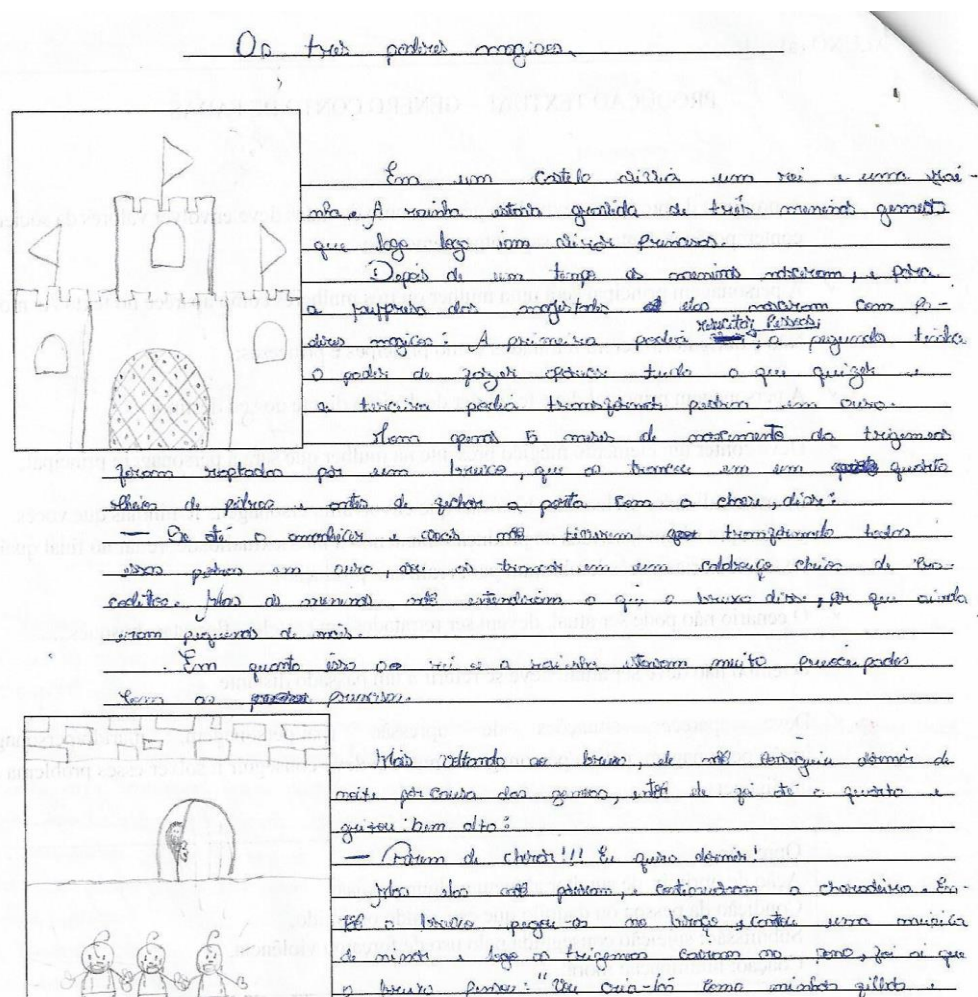 Os três poderes magicos.
Em um Castelo vivia um rei e uma rai-
nha, a rainha estava gravida de três meninas gemeas
que logo logo iam virar Princesas.
Depois de um tempo as meninas nasceram, e para
a surpresa dos magestades elas nasceram com po-
deres magicos: A primeira podia resucitar Pessoas; a segunda tinha
o poder de fazer aparecer tudo o que quizer e
a terceira podia transformar pedra em ouro.
apenas 5 meses de nascimento as trigemeas
foram raptadas por um bruxo, que as trancou em um quarto
cheio de pedras e antes de fechar a porta com a chave, disse:
— Se até o amanhecer e voces não tiverem transformado todas
essas pedras em ouro irei as trancar em um calabouço cheio de
Mas as meninas não entenderam o que o bruxo disse, por que ainda
eram pequenas de mais.
Em quanto isso o rei e a rainha estavam muito preocupados
com as princesas.
Mais voltando ao bruxo, ele não conseguia dormir de
noite por causa das gemeas, então ele foi até o quarto e
gritou bem alto:
— Parem de chorar!!! Eu quero dormir!
Mas elas não pararam, continuaram a choradeira. En-
tão o bruxo pegou-as no braço, cantou uma musica
de ninar e logo as trigemeas cairam no sono, foi ai que
o bruxo pensou: "Vou cria-las como minhas filhas e